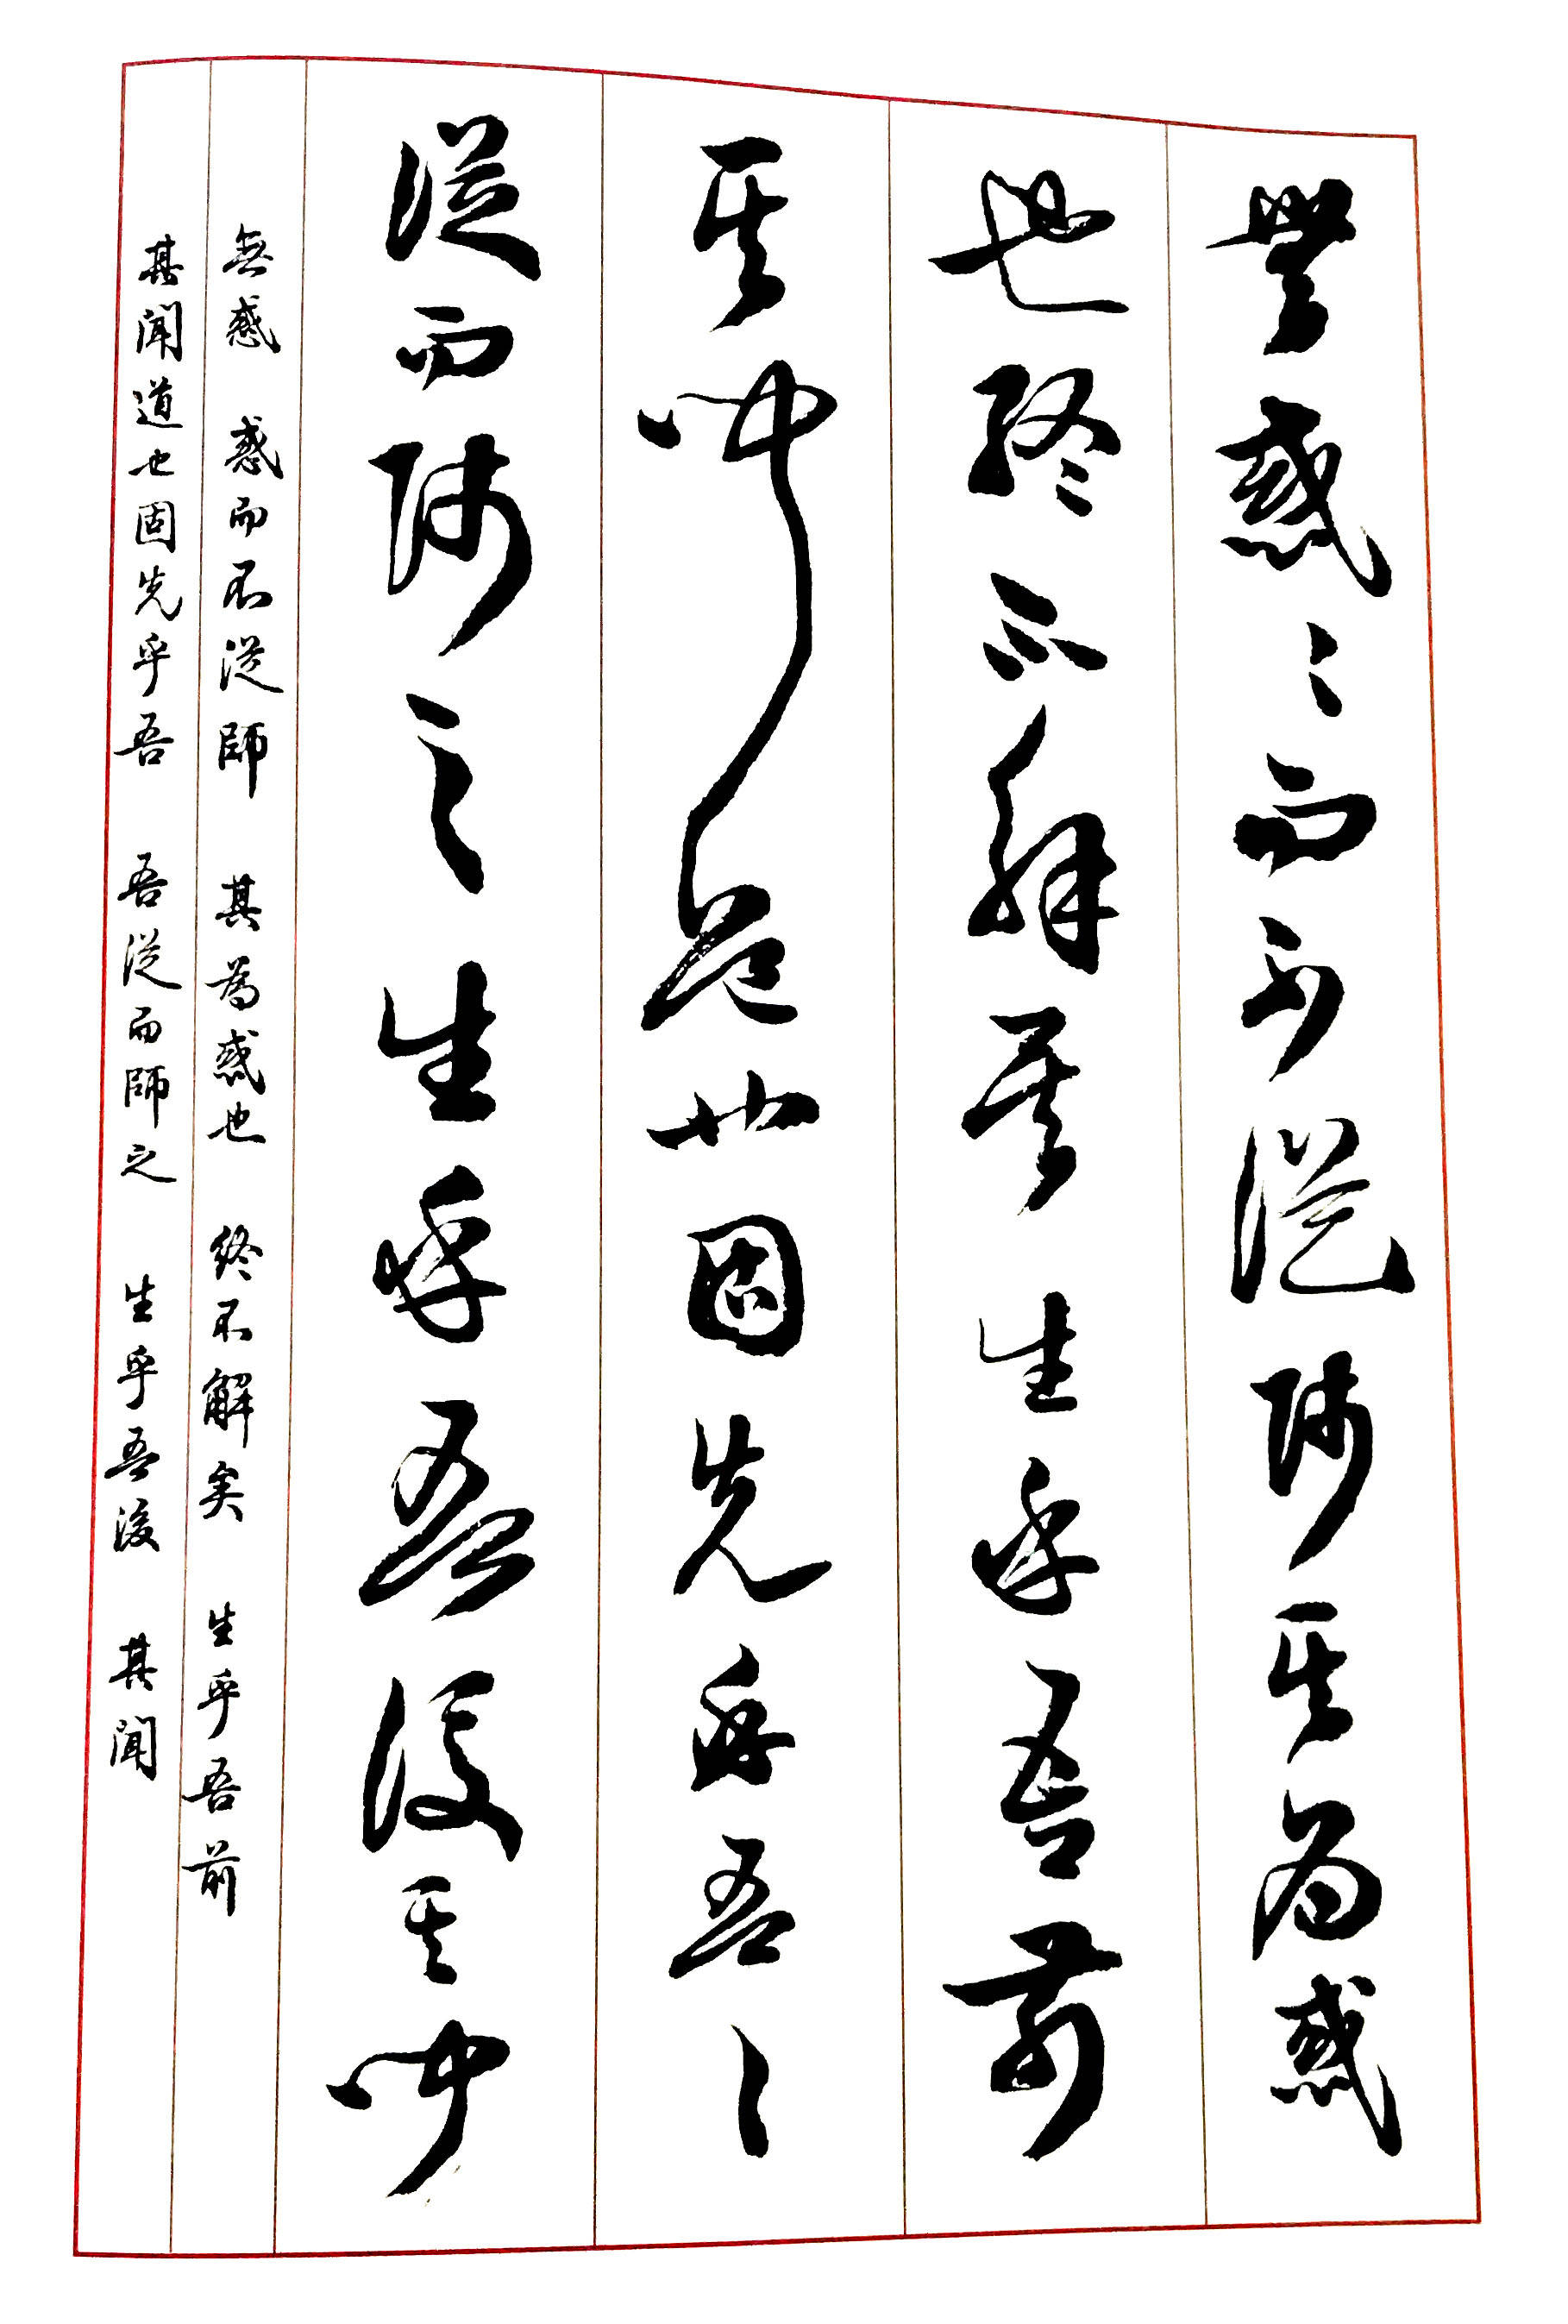 無惑々而不從師其為惑
也終不解矣生乎吾前
其聞道也固先乎吾々
從而師之生乎吾後其聞
無惑 惑而不從師 其為惑也 終不解矣 生乎吾前
其聞道也固先乎吾 吾從而師之 生乎吾後 其聞